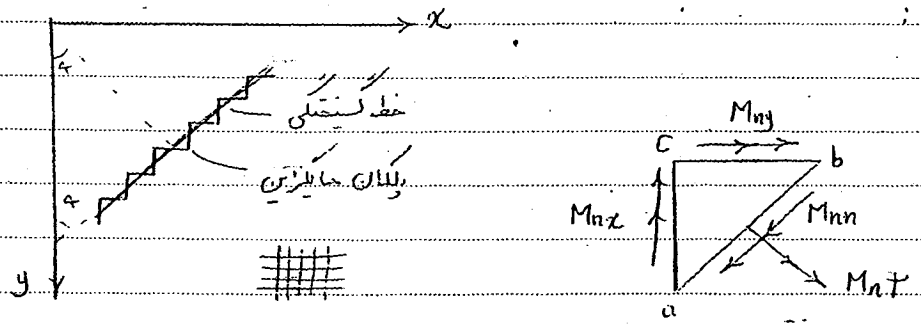 x
خط گسیختگی
پلکان جایگزین
y
c
Mny
b
Mnx
Mnn
MnT
a